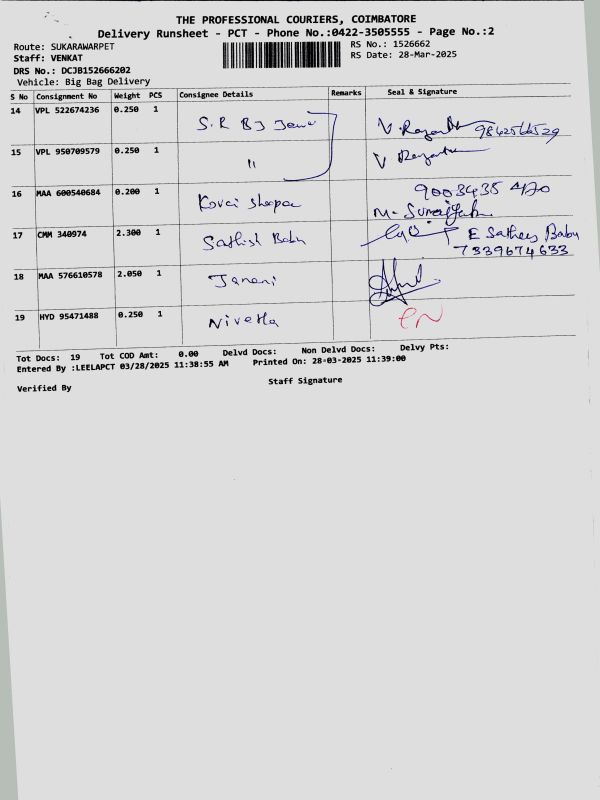 THE PROFESSIONAL COURIERS, COIMBATORE
Delivery Runsheet - PCT - Phone No.:0422-3505555 - Page No.:2
Route: SUKARAWARPET
RS No.: 1526662
Staff: VENKAT
RS Date: 28-Mar-2025
DRS No.: DCJB152666202
Vehicle: Big Bag Delivery
S No Consignment No Weight PCS Consignee Details Remarks Seal & Signature
14 VPL 522674236 0.250 1 S.R BJ
15 VPL 950709579 0.250 1 "
16 MAA 600540684 0.200 1 Kovai
17 CMM 340974 2.300 1 Sathish Babu E Sathees Babu
7339674633
18 MAA 576610578 2.050 1 Janani
19 HYD 95471488 0.250 1 Nivetha
Tot Docs: 19 Tot COD Amt: 0.00 Delvd Docs: Non Delvd Docs: Delvy Pts:
Entered By :LEELAPCT 03/28/2025 11:38:55 AM Printed On: 28-03-2025 11:39:00
Verified By
Staff Signature